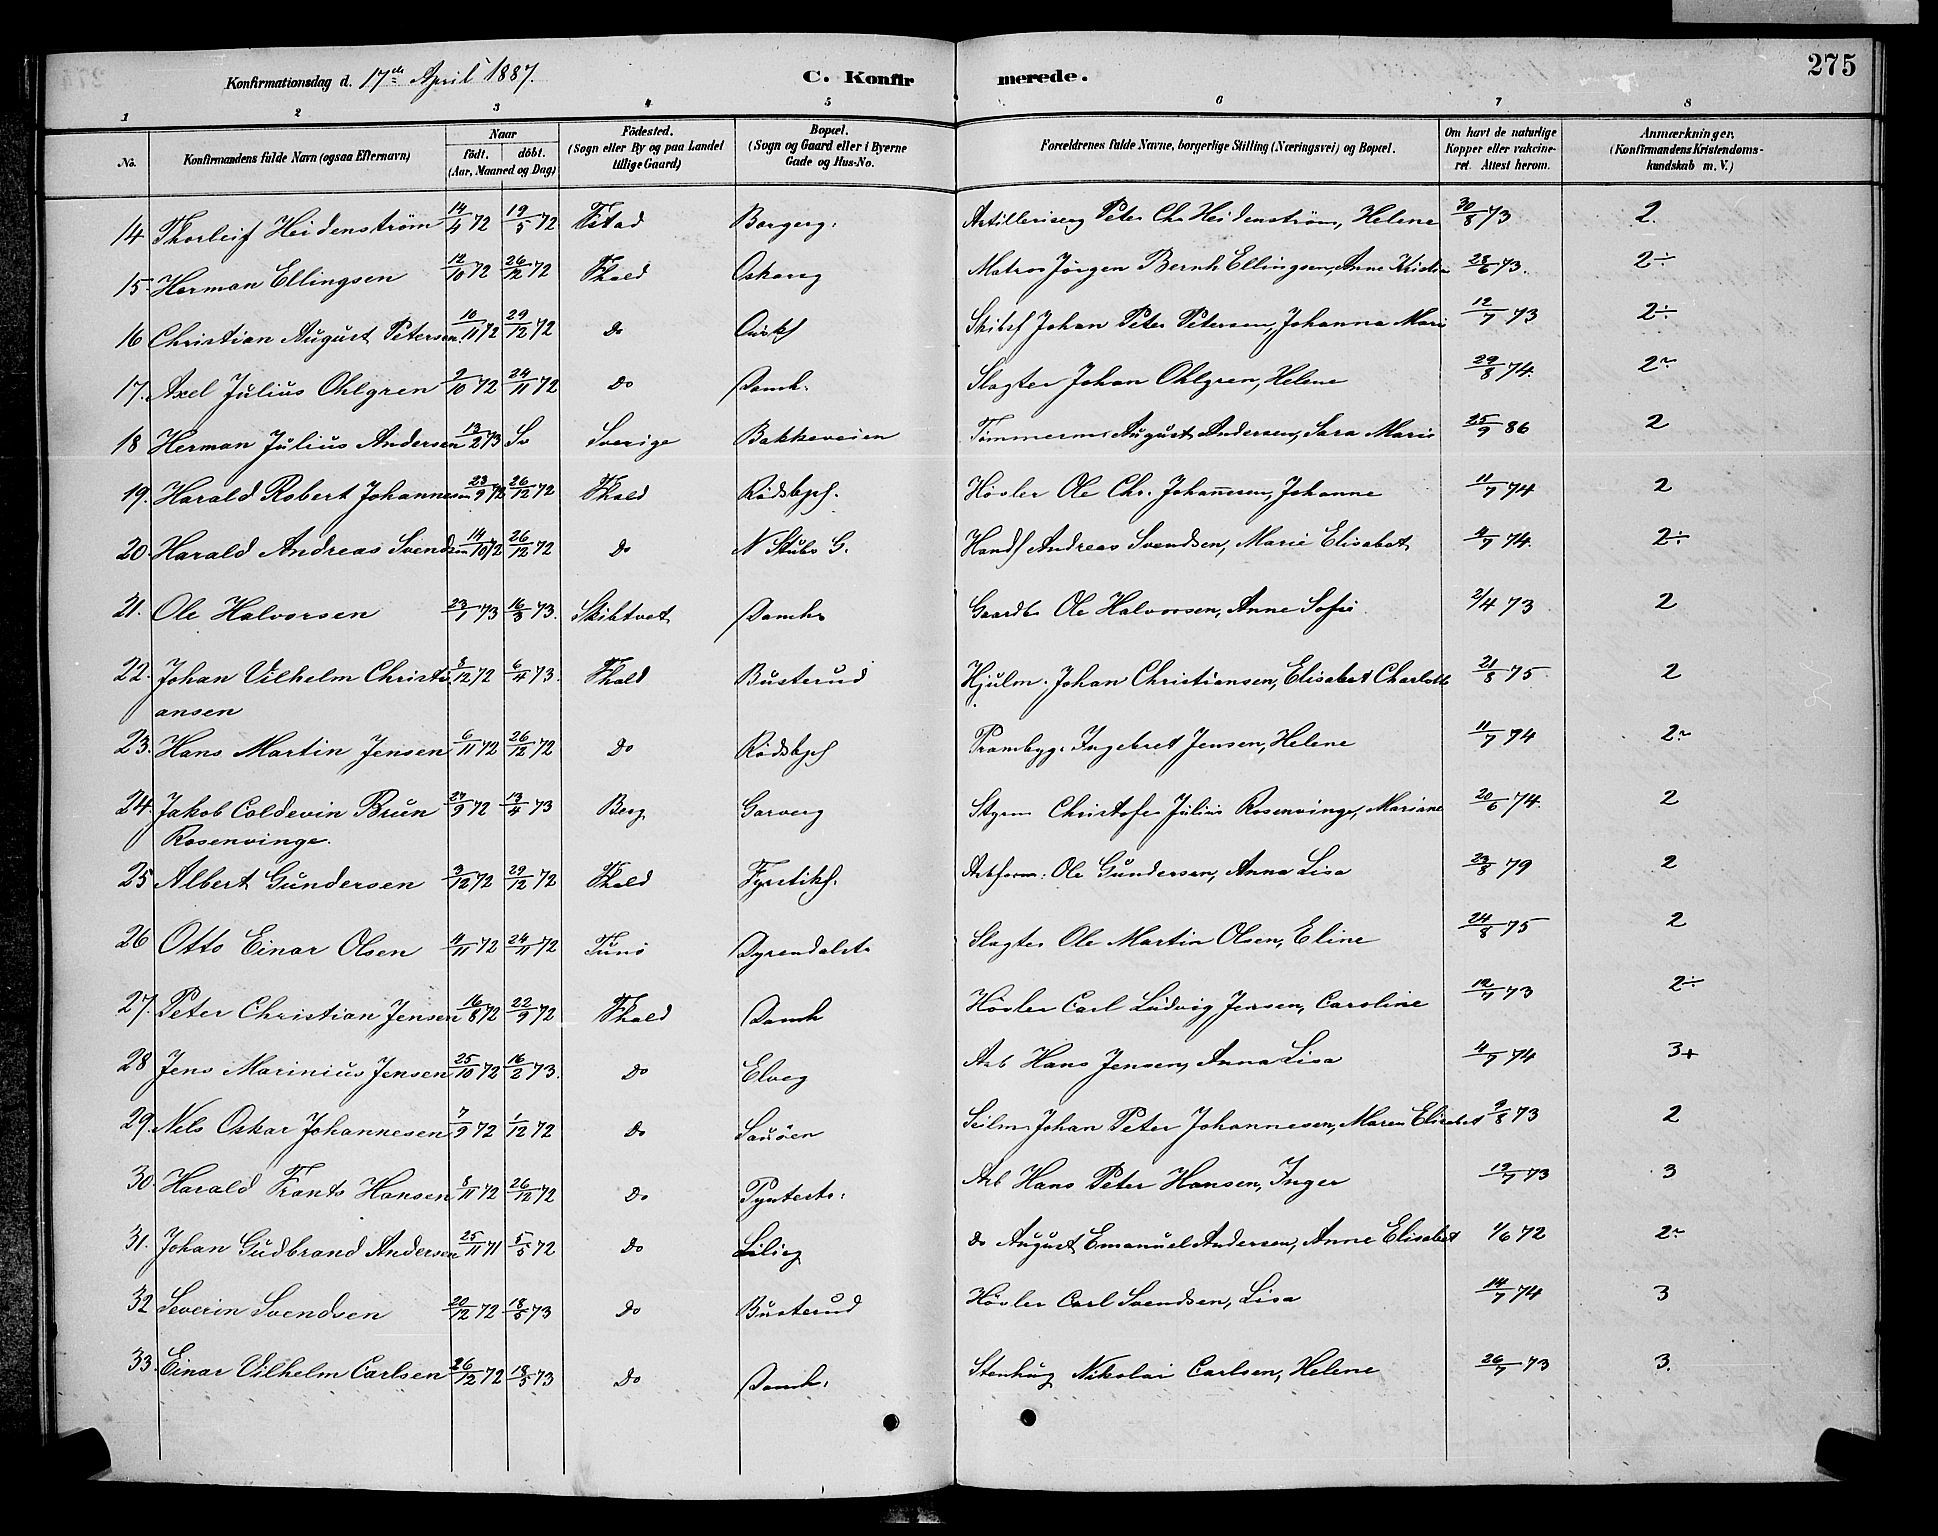 Konfirmationsdag d. 17de April 1887. C. Konfirmerede. 275
1 2 3 4 5 6 7 8
No. Konfirmandens fulde Navn (ogsaa Efternavn) Naar födt. döbt. (Aar, Maaned og Dag) Födested. (Sogn eller By og paa Landet tillige Gaard) Bopæl. (Sogn og Gaard eller i Byerne Gade og Hus-No. Forældrenes fulde Navne, borgerlige Stilling (Næringsvei) og Bopæl. Om havt de naturlige Kopper eller vakcineret. Attest herom. Anmærkninger. (Konfirmandens Kristendomskundskab m. V.)
14 Thorleif Heidenström 14/4 72 19/5 72 Fstad Borgerg. Artilleriserg Peter Chr Heidenström, Helene 30/8 73 2.
15 Herman Ellingsen 12/10 72 26/12 72 Fhald Oskarsg Matros Jörgen Bernh Ellingsen, Anne Kristin 28/6 73. 2÷
16 Christian August Petersen 10/11 72 29/12 72 do Skibsf Johan Peter Petersen, Johanna Marie 12/7 73 2÷
17. Axel Julius Ohlgren 9/10 72 24/11 72 do Damh. Slagter Johan Ohlgren, Helene 29/8 74. 2~
18 Herman Julius Andersen 13/2 73 Sv Sverige Bakkeveien Tömmerm August Andersen, Sara Marie 25/9 86 2
19. Harald Robert Johannesen 23/9 72 26/12 72 Fhald Rödsbjef. Hövler Ole Chr. Johannesen, Johanne 11/7 74 2
20. Harald Andreas Svendsen 14/10 72 26/12 72 do N Stubs G. Handf Andreas Svendsen, Marie Elisabet 4/7 74. 2÷
21. Ole Halvorsen 23/1 73 16/3 73. Skibtvet Damh Gaardb Ole Halvorsen, Anne Sofie 2/4 73 2
22. Johan Vilhelm Christi 8/12 72 6/4 73. Fhald Busterud Hjulm. Johan Christiansen, Elisabet Charlotte 21/8 75 2
ansen
23. Hans Martin Jensen 6/11 72 26/12 72 do Rödsbjef Prambyg. Ingebret Jensen, Helene 11/7 74 2~
24. Jakob Coldevin Brun 27/9 72 13/4 73 Berg Garverg Styrm Christofer Julius Rosenvinge, Mariane 20/6 74. 2
Rosenvinge.
25 Albert Gundersen 9/12 72 29/12 72 Fhald Fyrstikf. Arbform: Ole Gundersen, Anna Lisa 29/8 79 2
26 Otto Einar Olsen 4/11 72 24/11 72 Tunö Dyrendalst Slagter Ole Martin Olsen, Eline 24/8 75 2
27. Peter Christian Jensen 16/8 72 22/9 72 Fhald Damh Hövler Carl Ludvig Jensen, Caroline 12/7 73 2÷
28 Jens Marinius Jensen 25/10 72 16/2 73. do Elveg Arb Hans Jensen, Anna Lisa 4/7 74 3+
29. Nils Oskar Johannesen 7/9 72 1/12 72 do Sauöen Seilm Johan Peter Johannesen, Maren Elisabet 9/8 73 2
30. Harald Frants Hansen 8/11 72 26/12 72 do Pynterts. Arb Hans Peter Hansen, Inger 19/7 73 3
31. Johan Gudbrand Andersen 25/11 71 5/5 72 do Lilleg do August Emanuel Andersen, Anne Elisabet 1/6 72 2~
32 Severin Svendsen 20/12 72 18/5 73 do Busterud Hövler Carl Svendsen, Lisa 14/7 74 3
33. Einar Vilhelm Carlsen 26/12 72 18/5 73 do Damh. Stenhug Nikolai Carlsen, Helene 26/7 73 3.